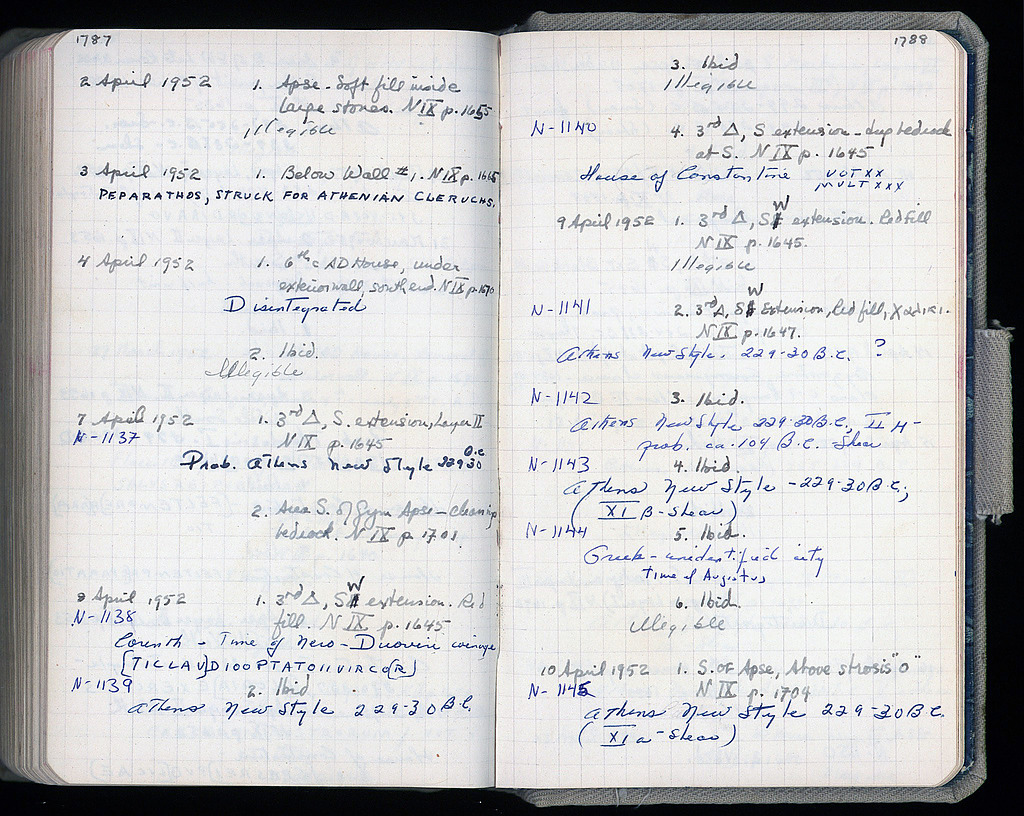 1787
2 April 1952 1. Apse - Soft fill inside
large stones. N IX p. 1655
Illegible
3 April 1952 1. Below Wall #1. N IX p. 1665
PEPARATHOS, STRUCK FOR ATHENIAN CLERUCHS,
4 April 1952 1. 6th c AD House, under
exterior wall, south end. N IX p. 1670
Disintegrated
2. Ibid.
Illegible
7 April 1952 1. 3rd Δ, S. extension, Layer II
N-1137 N IX p. 1645
Prob. Athens New Style 229-30 B.C.
2. Area S. of Gym Apse - cleaning
bedrock. N IX p. 1701
8 April 1952 1. 3rd Δ, SW extension. Red
N-1138 fill, N IX p. 1645
Corinth - Time of Nero - Duovir coinage
[TICLAU]DIOOPTATOIIVIRCO[R]
N-1139 2. Ibid
Athens New Style 229-30 B.C.
1788
3. Ibid
Illegible
N-1140 4. 3rd Δ, S extension - deep bedrock
at S. N IX p. 1645
House of Constantine VOT XX
MULT XXX
9 April 1952 1. 3rd Δ, SW extension. Red fill
N IX p. 1645.
Illegible
N-1141 2. 3rd Δ, SW Extension, Red fill,
N IX p. 1647.
Athens New Style. 229-30 B.C. ?
N-1142 3. Ibid.
Athens New Style 229-30 B.C., II H-
prob. ca. 104 B.C. Shear
N-1143 4. Ibid.
Athens New Style - 229-30 B.C.,
(XI B-Shear)
N-1144 5. Ibid.
Greek - unidentified city
time of Augustus
6. Ibid.
Illegible
10 April 1952 1. S. of Apse, Above strosis "O"
N-1145 N IX p. 1704
Athens New Style 229-30 B.C.
(XI a - Shear)